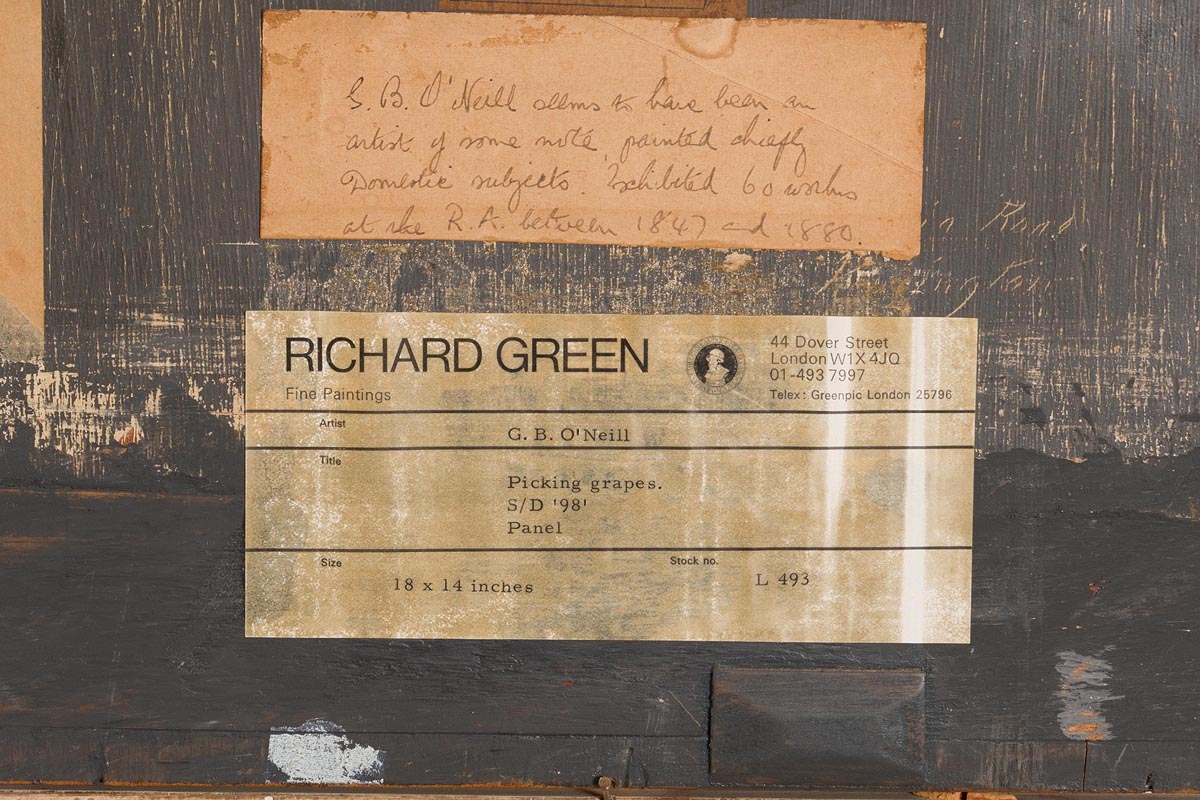 G. B. O'Neill seems to have been an
artist of some note, painted chiefly
Domestic subjects. Exhibited 60 works
at the R.A. between 1847 and 1880.
in Road
RICHARD GREEN
Fine Paintings
44 Dover Street
London W1X 4JQ
01-493 7997
Telex: Greenpic London 25796
Artist
G. B. O'Neill
Title
Picking grapes.
S/D '98'
Panel
Size
18 x 14 inches
Stock no.
L 493